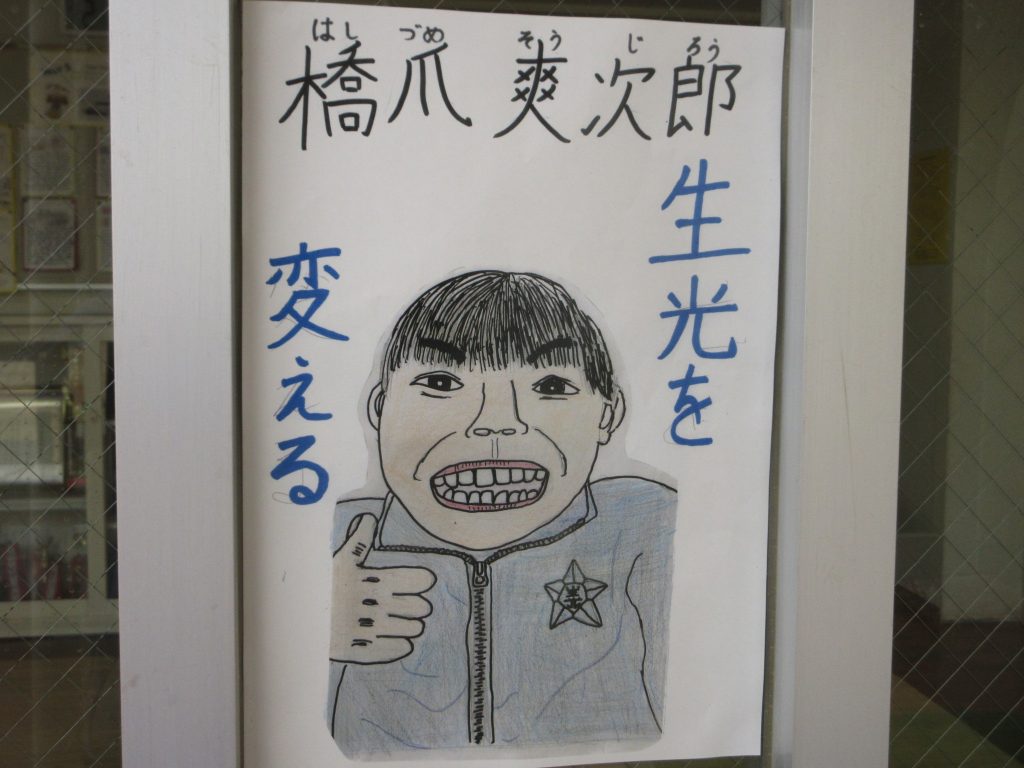 はし づめ そう じ ろう
橋爪 爽次郎
生光を
変える